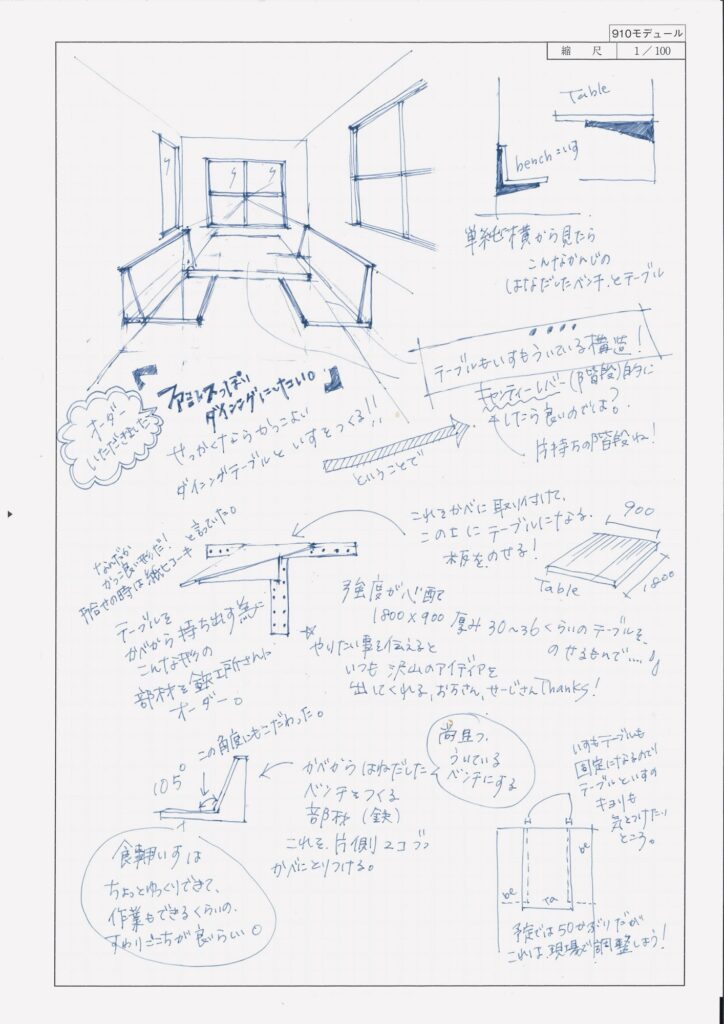 910モデュール
縮 尺 1/100
Table
benchいす
単純に横から見たら
こんなかんじの
はねだしたベンチとテーブル
テーブルもいすもういている構造!
キャンティーレバー(階段)的に
したら良いのでは?
片持ちの階段ね!
オーダー
いただきました
『ファミレスっぽい
ダイニングにしたい。』
せっかくならかっこよい
ダイニングテーブルといすをつくる!!
ということで
なんだか
かっこ良い形だ!
打合せの時は紙ヒコーキと言っていた。
これをかべに取り付けて、
この上にテーブルになる
板をのせる!
900
1800
Table
テーブルを
かべから持ち出す為に
こんな形の
部材を鉄工所さんに
オーダー。
強度が心配で
1800×900 厚み30~36くらいのテーブルを、
のせるもんで....
☆やりたい事を伝えると
いつも沢山のアイディアを
出してくれる、おぢさん、せーじさんThanks!
この角度にもこだわった。
105°
かべからはねだした
ベンチをつくる
部材(鉄)
これを片側2コづつ
かべにとりつける。
尚且つ、
ういている
ベンチにする
いすもテーブルも
固定になるので
テーブルといすの
キョリも
気をつけたい
ところ。
食事用いすは
ちょっとゆっくりできて、
作業もできるくらいの、
すわりごこちが良いらしい。
be
be
Ta
予定では50せぶりだが
これは、現場で調整しよう!